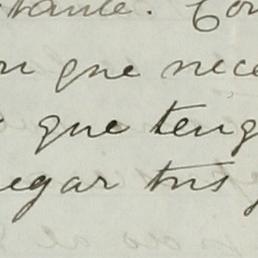 tante. Con
n que nece
que teng
egar tus